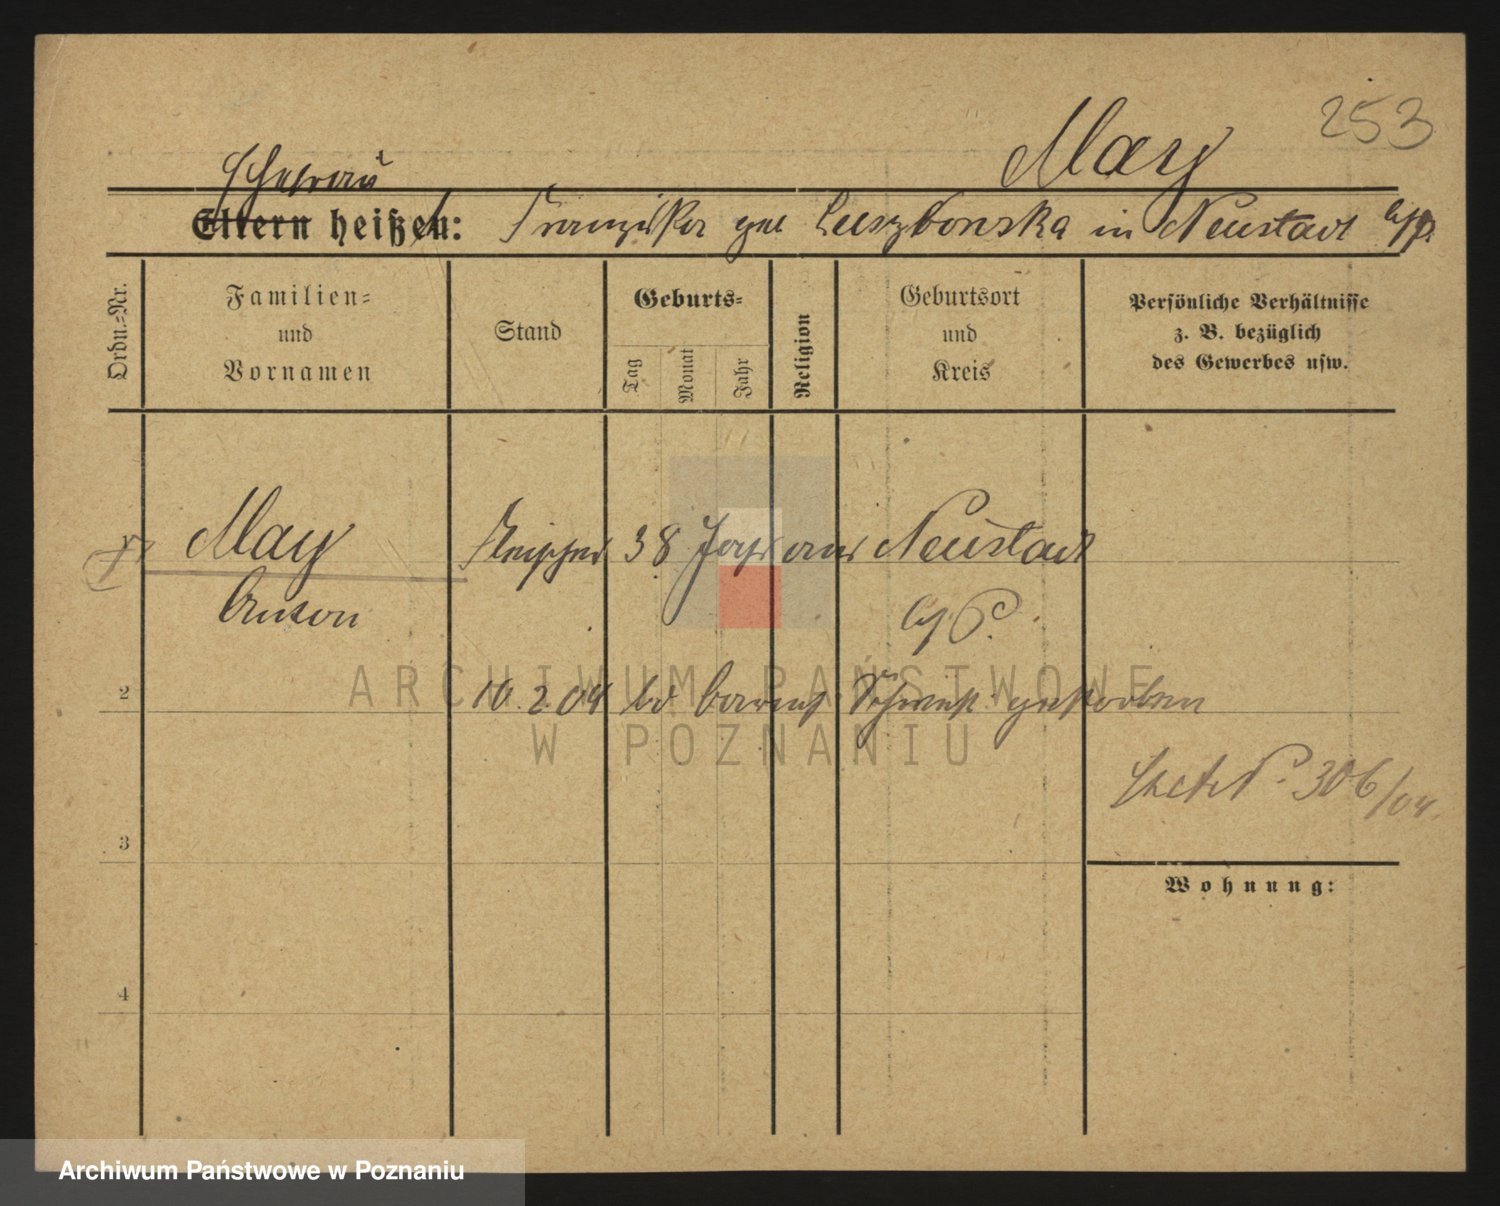 253
May
Ehefrau
Eltern heißen: Franziska geb Luszkonska in Neustadt b/P.
Ordn.=Nr.
Familien=
und
Vornamen
Stand
Geburts=
Tag
Monat
Jahr
Religion
Geburtsort
und
Kreis
Persönliche Verhältnisse
z. B. bezüglich
des Gewerbes usw.
1
May Fleischer 38 Jahr aus Neustadt
Anton
b/P.
ARCHIWUM PAŃSTWOWE
2
10.2.04 gestorben
W POZNANIU
306/04.
3
Wohnung:
4
Archiwum Państwowe w Poznaniu